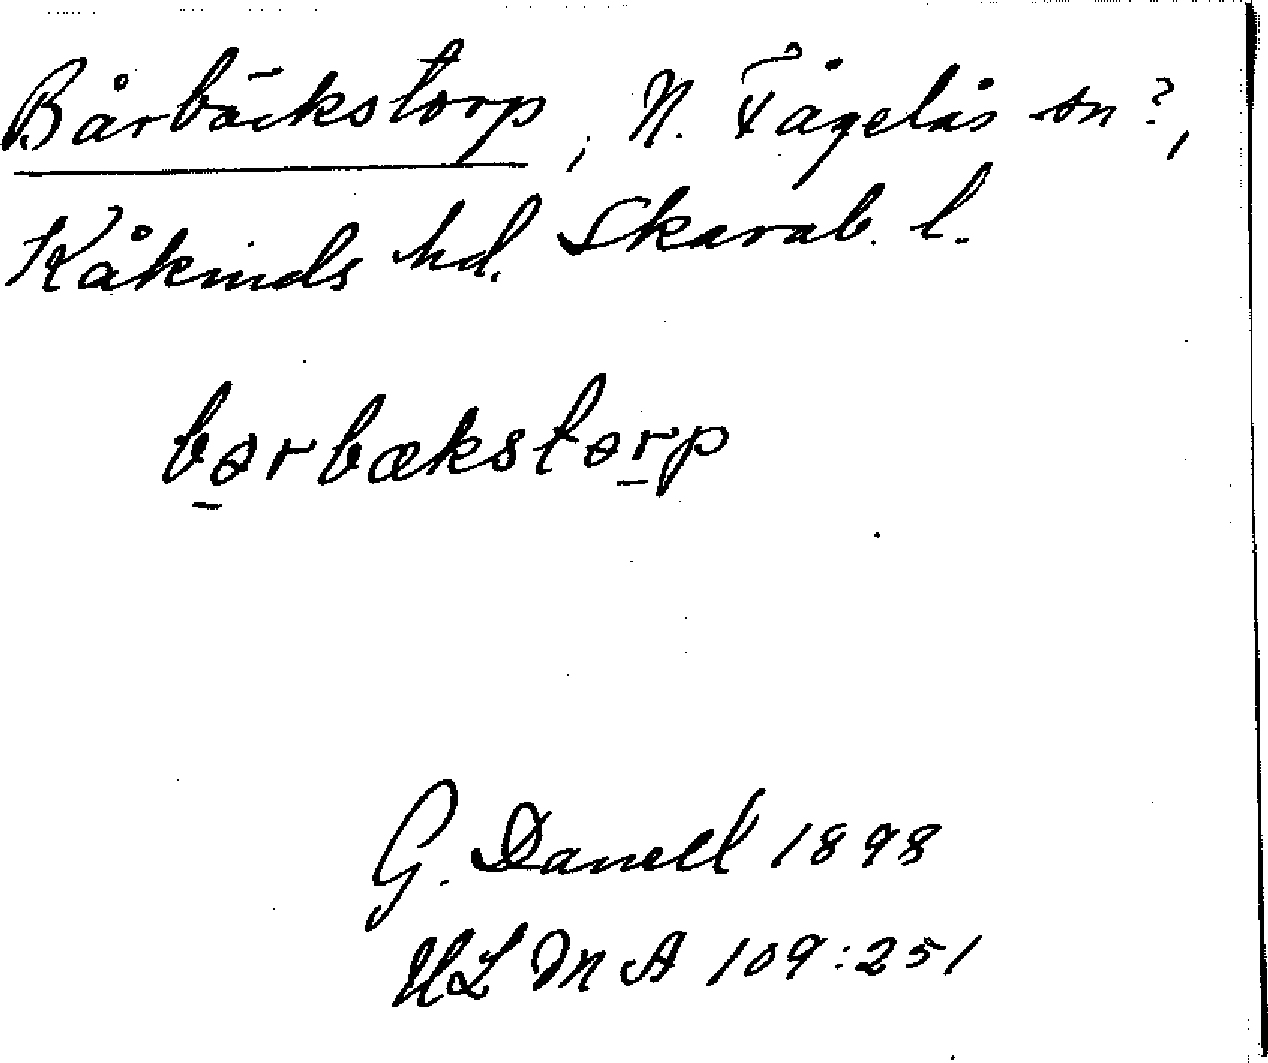 Bårbäckstorp, N. Fågelås sn?,
Kåkinds hd. Skarab. l.
bərbækstorp
G. Danell 1898
ULMA 109:251